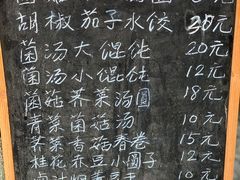 胡椒茄子水饺 30元
菌汤大馄饨 20元
菌汤小馄饨 12元
菌菇荠菜汤圆 18元
青菜菌菇汤 10元
荠菜香菇春卷 15元
桂花赤豆小圆子 12元